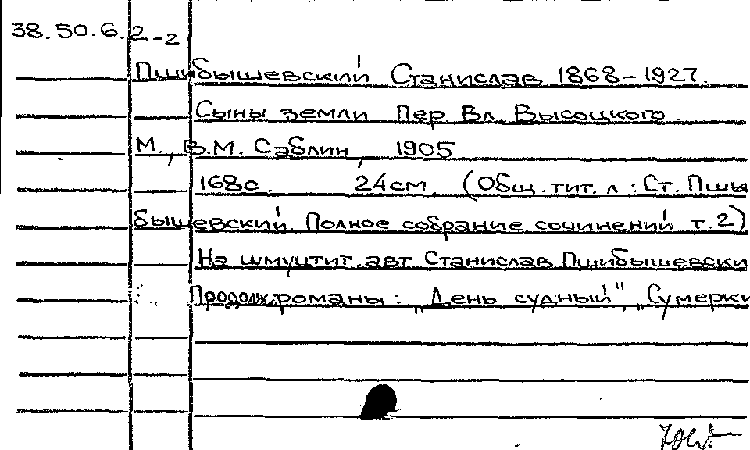 38.50.6.2-2
Пшибышевский Станислав 1868-1927.
Сыны земли Пер Вл. Высоцкого
М., В.М. Саблин, 1905
168с. 24см. (Общ. тит. л: Ст. Пшы
бышевский. Полное собрание сочинений т. 2)
На шмуцтит. авт Станислав Пшибышевски
Продолж. романы: „День судный", „Сумерки